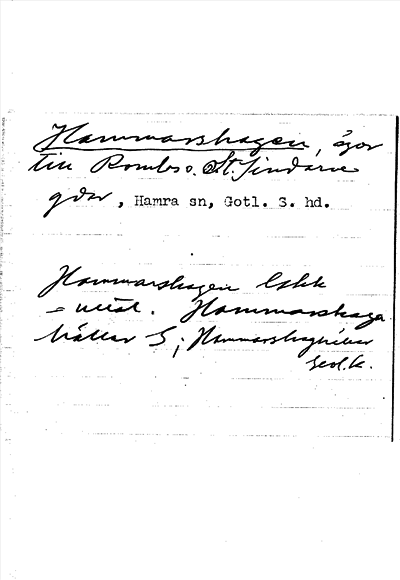 Hammarshagen, ägor
till Rombs o. St. Sindarve
gdar, Hamra sn, Gotl. S. hd.
Hammarshagen Cskk
Hammarshaga
hällar S; Hammarshaghällar
Geol.k.